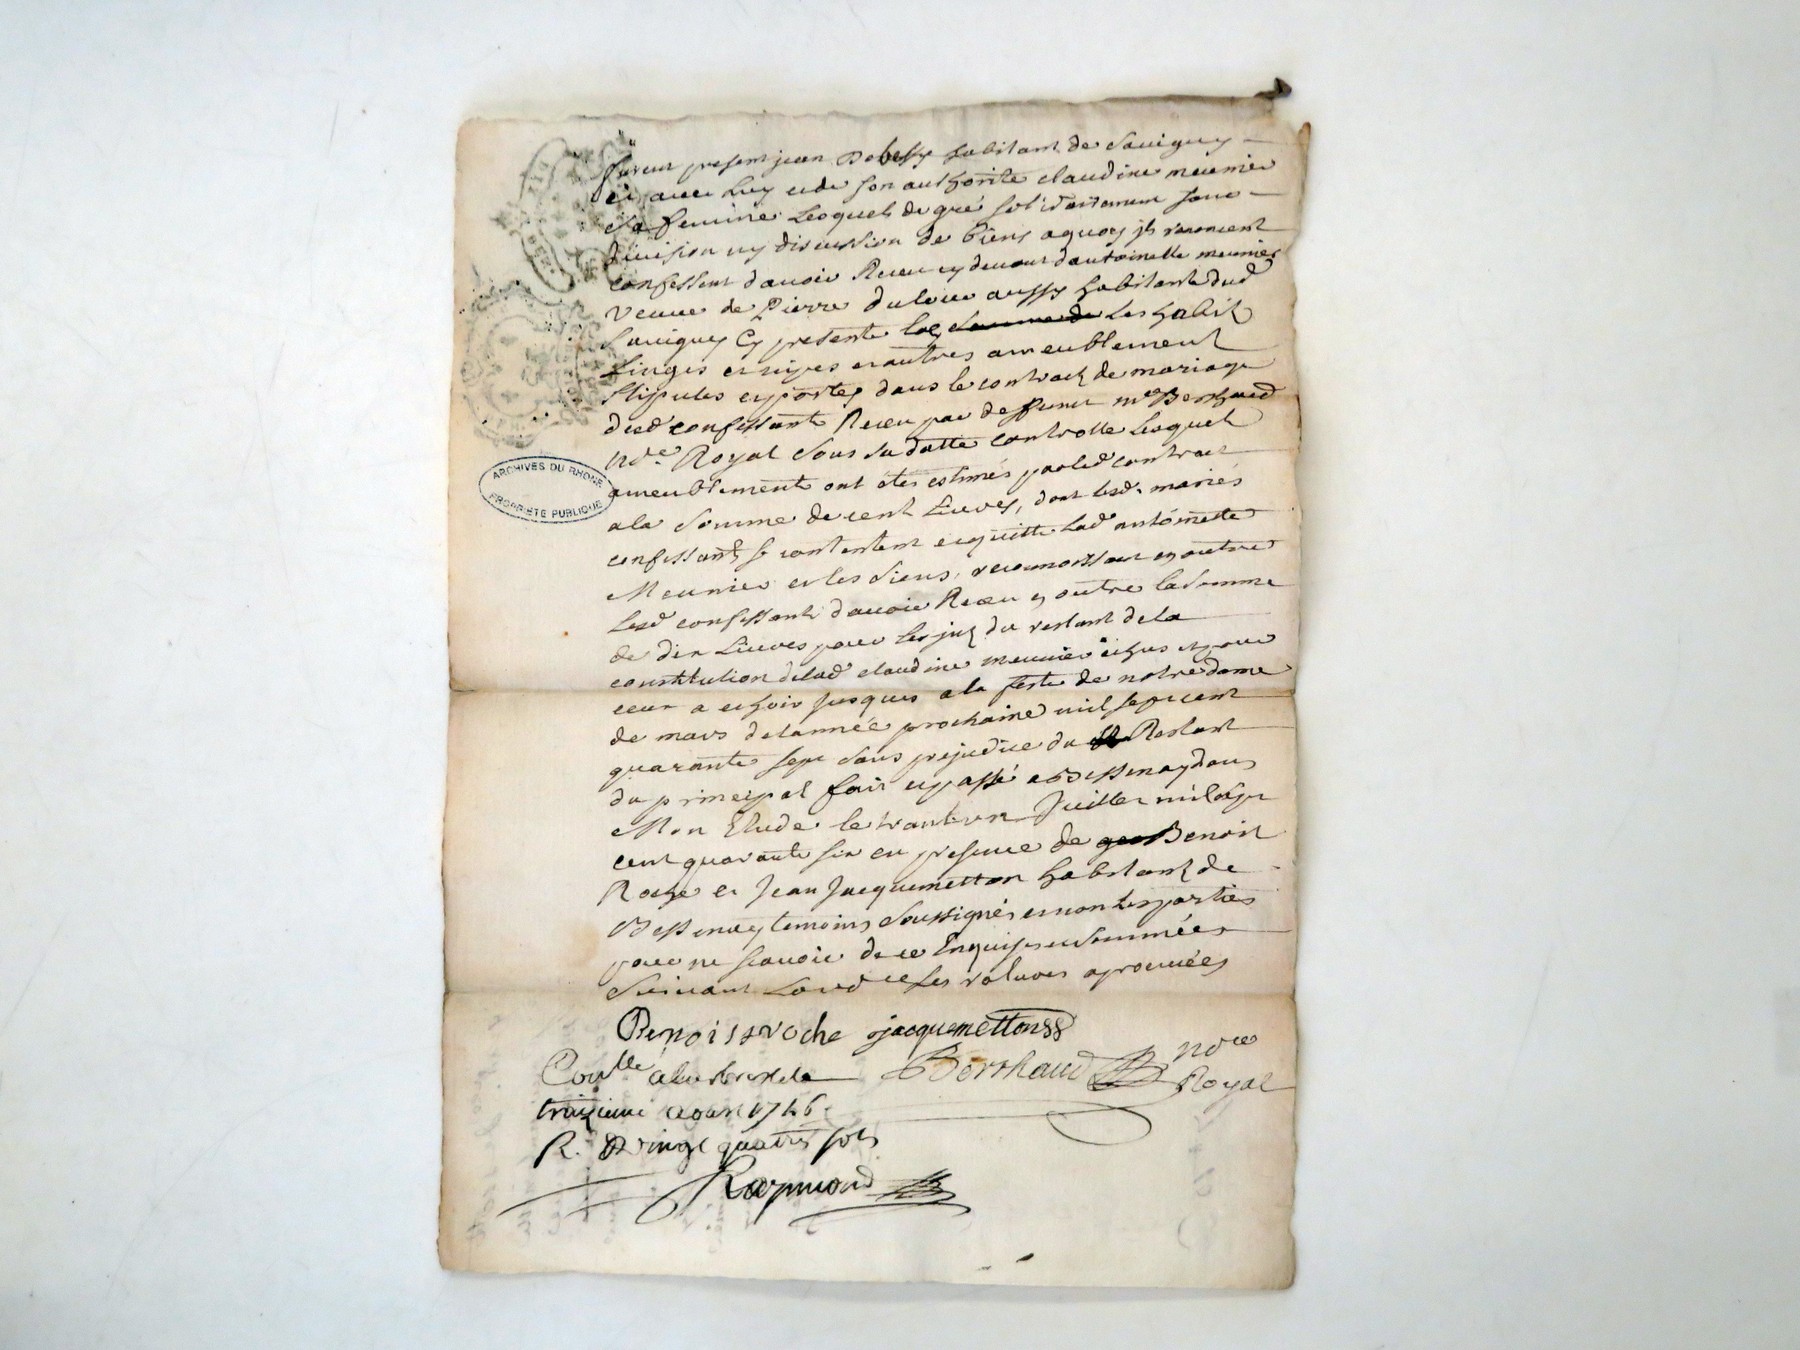 furent present jean Dobessy habitant de Sauigny
et auec luy et de son authorité claudine meunier
sa femme Lesquels de gré solidairement sans
diuision ny discussion de biens aquoy ils renoncent
confessent dauoir Receu cy deuant dantoinette meunier
veuue de Pierre duloue aussy habitante dud
Sauigny Cy presente les habit
Linges et autres ameublement
stipules et portes dans le contrack de mariage
desd confessants Receu par deffunct me Berthaud
Nore Royal sous sa datte controlle Lesquels
ameublements ont étés estimés par led contrat
a la somme de cent Liures, dont lesd. mariés
confessants se contentent et quitte lad antoinette
Meunier et les siens, reconnoissant en outre
Lesd confessants dauoir Receu en outre la somme
de dix Liures pour du restant de la
constitution delad claudine meunier echus et pour
ceux a echoir jusques a la feste de notre dame
de mars de lannée prochaine mil sept cent
quarante sept sans prejudice du Restant
du principal fait et passé a Bessenay dans
Mon Etude le trantun Juillet mil sept
cent quarante six en presence de Benoit
Roche et Jean Jacquemetton habitants de
Bessenay temoins soussignés et non les parties
pour ne scauoir de ce Enquises et sommées
suiuant Lord ce les ratures aprouuées
Benoist roche jacquemetton
Conlle a Berthaud nore
traizieme aoust 1746. Royal
R. vingt quatre sols
Raymond
ARCHIVES DU RHONE
PROPRIETE PUBLIQUE